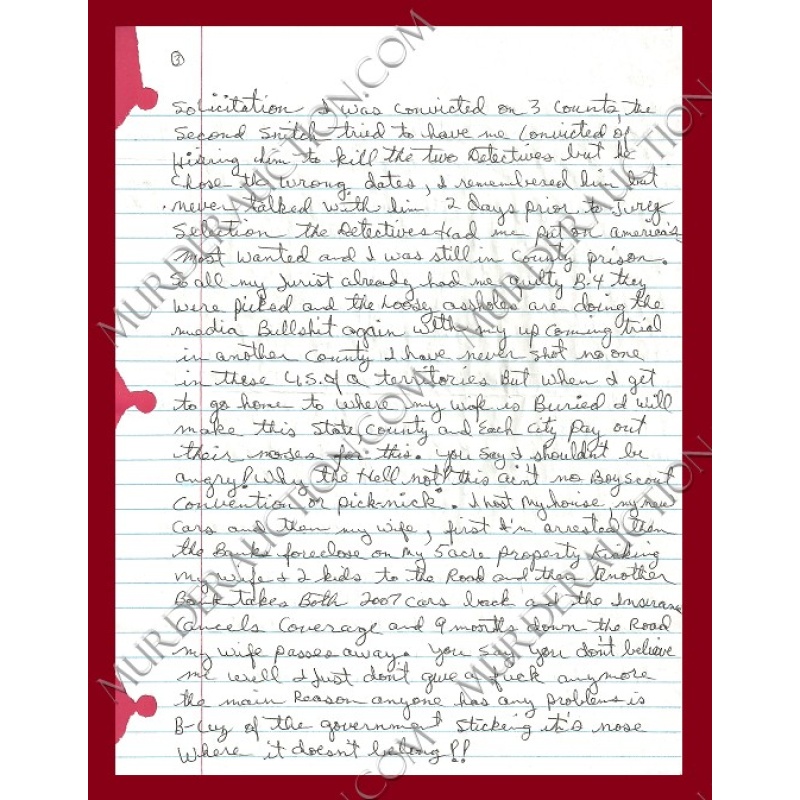 3
Solicitation I was convicted on 3 counts, the
Second Snitch tried to have me convicted of
Hiering him to kill the two Detectives but he
chose the wrong dates, I remembered him but
never talked with him 2 days prior to Jurey
Selection the Detectives Had me put on america's
most wanted and I was still in County prison.
So all my Jurist already had me guilty B-4 they
were picked and the Loosey assholes are doing the
media Bullshit again with my up coming trial
in another County I have never shot no one
in these U.S. of a territories But when I get
to go home to where my wife is Buried I will
make this State, County and Each City pay out
their noses for this. you say I shouldn't be
angry! Why the Hell not! this ain't no Boyscout
Convention or pick-nick. I lost my house, my new
cars and then my wife, first I'm arrested then
the Banks foreclose on my 5 acre property kicking
my wife & 2 kids to the Road and then Another
Bank takes Both 2007 cars back and the Insurance
Cancels Coverage and 9 months down the Road
my wife passes away. you say you don't believe
me well I Just don't give a fuck anymore
the main Reason anyone has any problems is
B-Cuz of the government sticking it's nose
where it doesn't belong!!
MURDERAUCTION.COM